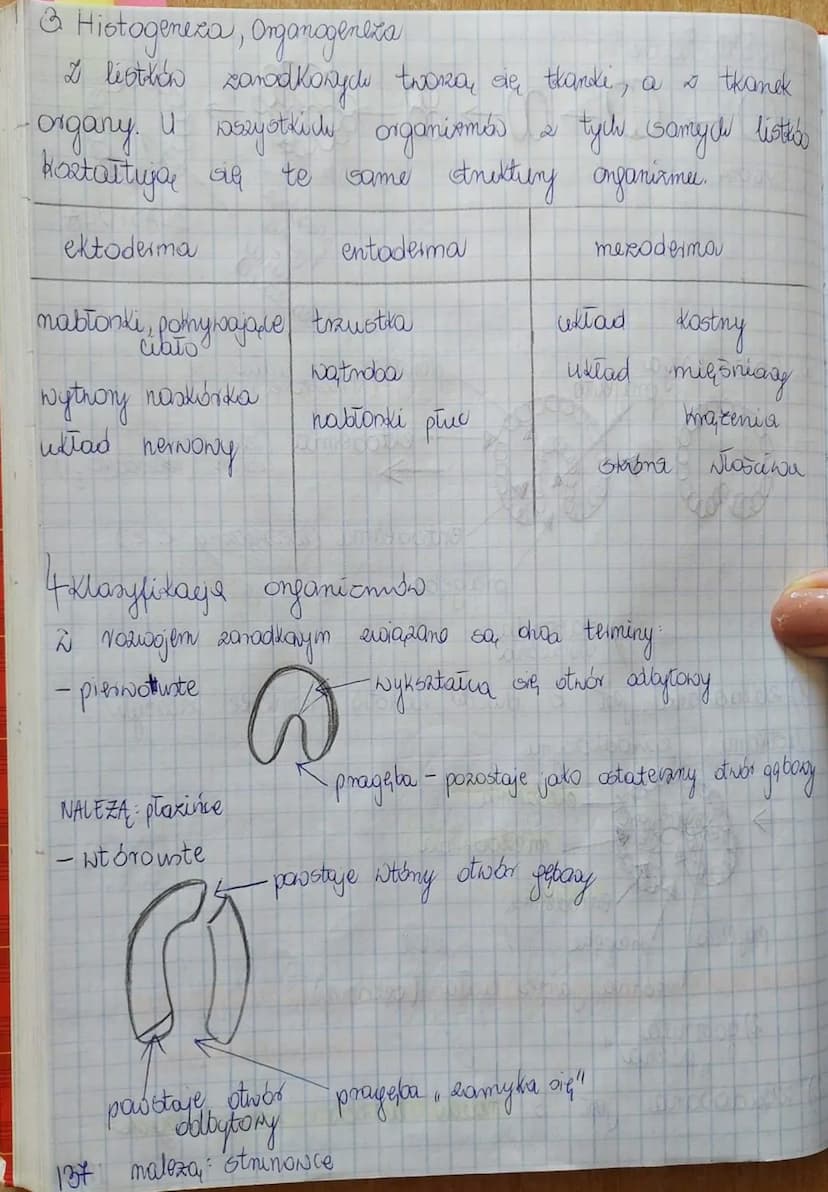 3 Histogeneza, Organogeneza
Z listków zarodkowych tworzą się tkanki, a z tkanek
organy. U wszystkich organizmów z tych samych listków
kształtują się te same struktury organizmu.
ektoderma entoderma mezoderma
nabłonki, pokrywające trzustka układ kostny
ciało
wątroba układ mięśniowy
wytwory naskórka nabłonki płuc krążenia
układ nerwowy
skóra właściwa
4 Klasyfikacja organizmów
Z rozwojem zarodkowym związane są dwa terminy:
- pierwouste
wykształca się otwór odbytowy
pragęba - pozostaje jako ostateczny otwór gębowy
NALEŻĄ: płazińce
- wtórouste
powstaje wtórny otwór gębowy
powstaje otwór
odbytowy
pragęba "zamyka się"
137 należą: strunowce